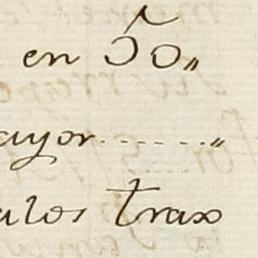 en 50„
ayor.......„
alos trax